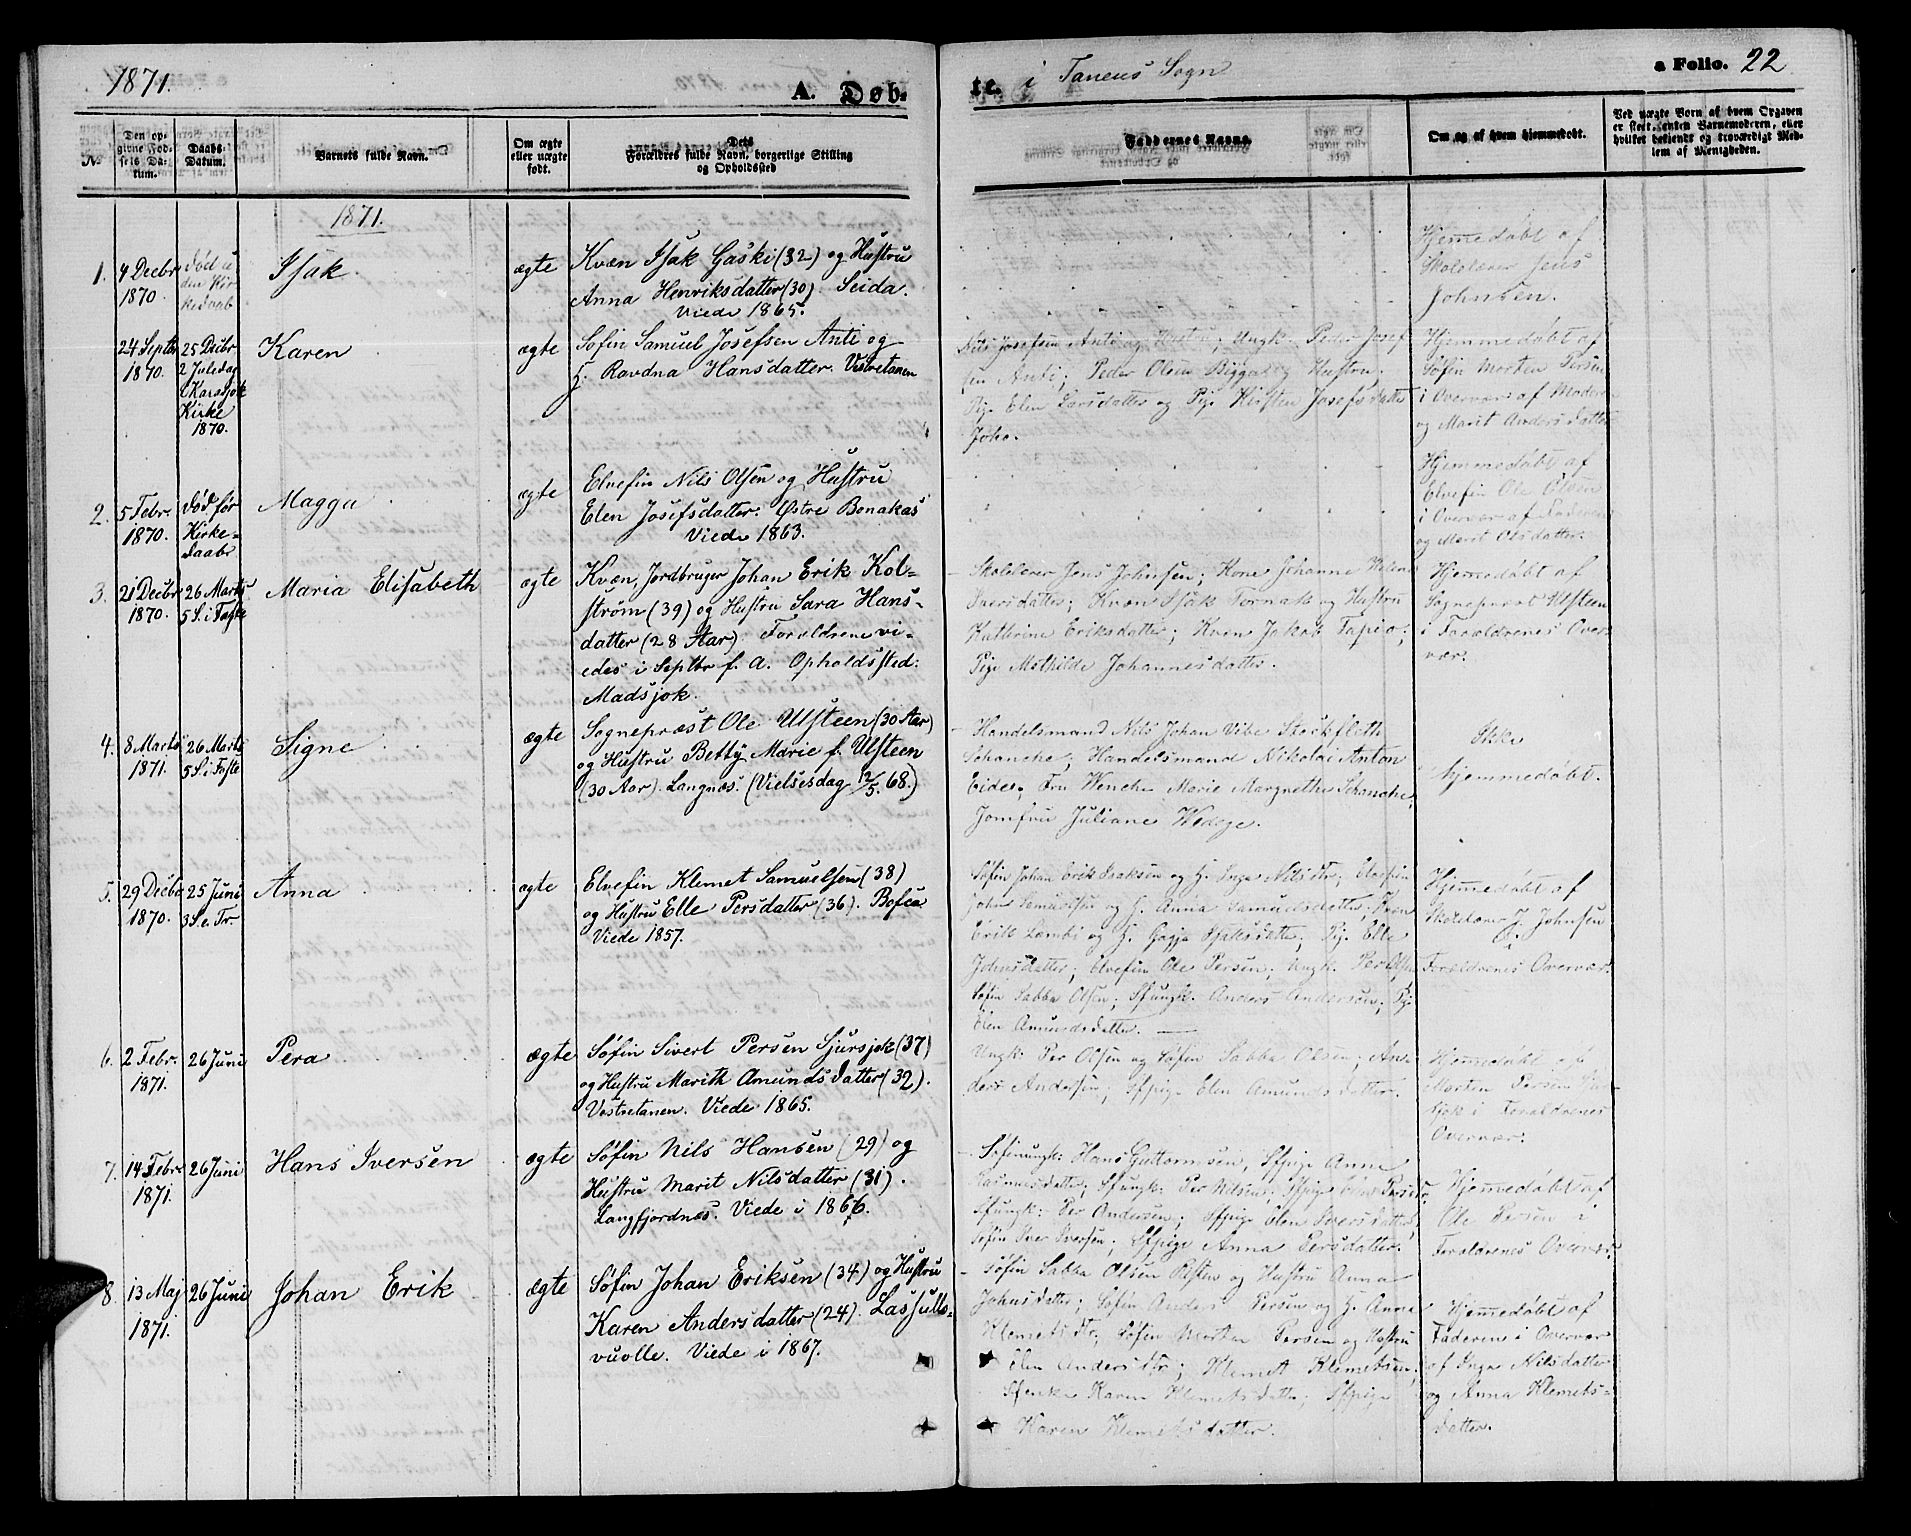 1871. A. Døb- te. i Tanens Sogn a Folio. 22
No
Den opgivne Fødsels Datum.
Daabs Datum.
Barnets fulde Navn.
Om ægte eller uægte født.
Dets Forældres fulde Navn, borgerlige Stilling og Opholdssted
Faddernes Navne.
Om og af hvem hjemmedøbt.
Ved uægte Børn af hvem Opgaven er skeet, enten Barnemoderen, eller hvilket bekjendt og troværdigt Medlem af Menigheden.
1871.
1. 4 Decbr 1870. død u den Kirkedaab
Isak.
ægte
Kvæn Isak Gaski (32) og Hustru
Anna Henriksdatter (30) Seida.
Viede 1865.
Hjemmedøbt af
Skolelærer Jens
Johnsen.
24 Septbr 1870. 25 Decbr 2 Juledag i Karasjok Kirke 1870.
Karen
ægte
Søfin Samuel Josefsen Anti og
H. Ravdna Hansdatter. Vestretanen
Nils Josefsen Anti og Hustru; Ungk. Peder Josef
sen Anti; Peder Olsen Bigga og Hustru;
Pig. Elen Larsdatter og Pig. Kirsten Josefsdatter
Joks.
Hjemmedøbt af
Søfin Morten Persen
i Overvær af Moderen
og Marit Andersdatter
2. 5 Febr. 1870. død før Kirke-daab
Magga
ægte
Elvefin Nils Olsen og Hustru
Elen Josefsdatter. Østre Bonakas
Viede 1863.
Hjemmedøbt af
Elvefin Ole Olsen
i Overvær af Faderen
og Marit Olsdatter.
3. 21 Decbr 1870. 26 Marts 5 S. i Faste
Maria Elisabeth
ægte
Kvæn, Jordbruger Johan Erik Kol-
strøm (39) og Hustru Sara Hans-
datter (28 Aar) Forældrene vi-
edes i Septbr f. A. Opholdssted:
Madsjok.
Skolelærer Jens Johnsen; Kone Johanne Helene
Iversdatter; Kvæn Isak Tornak og Hustru
Katherine Eriksdatter; Kvæn Jakob Tapio;
Pige Mathilde Johannesdatter.
Hjemedøbt af
Sognepræst Ulsteen
i Forældrenes Over-
vær.
4. 8 Marts 1871. 26 Marts 5 S. i Faste
Signe
ægte
Sognepræst Ole Ulsteen (30 Aar)
og Hustru Betty Marie f. Ulsteen
(30 Aar). Langnæs. (Vielsesdag 12/5. 68.)
Handelsmand Nils Johan Vibe Stockfleth
Schanche; Handelsmand Nikolai Anton
Eide; Fru Wenche Marie Margrethe Schanche,
Jomfru Juliane Wedege.
Ikke
hjemmedøbt.
5. 29 Decbr 1870. 25 Juni 3 S. e. Tr.
Anna
ægte
Elvefin Klemet Samuelsen (38)
og Hustru Elle Persdatter (36). Bofca
Viede 1857.
Søfin Johan Erik Isaksen og H. Inga Nilsdtr; Elvefin
John Samuelsen og H. Anna Samuelsdatter; Kvæn
Erik Lembi og H. Gagja Isaksdatter; Pig. Elle
Johnsdatter; Elvefin Ole Persen; Ungk. Per Olsen
Søfin Sabba Olsen; Sfungk. Anders Andersen; Pig.
Elen Amundsdatter.
Hjemedøbt af
Skolelærer J. Johnsen
i
Forældrenes Overvær.
6. 2 Febr. 1871. 26 Juni
Pera
ægte
Søfin Sivert Persen Sjursjok (37)
og Hustru Marith Amundsdatter (32).
Vestretanen. Viede 1865.
Ungk. Per Olsen og Søfin Sabba Olsen; An-
ders Andersen, Sfpige Elen Amundsdatter.
Hjemedøbt af
Morten Persen
i Forældrenes
Overvær.
7. 14 Febr. 1871. 26 Juni
Hans Iversen
ægte
Søfin Nils Hansen (29) og
Hustru Marit Nilsdatter (31).
Langfjordnæs. Viede i 1866.
Søfinungk: Hans Guttormsen, Sfpige Anne
Rasmusdatter; Sfungk: Per Nilsen; Sfpige Elen Persdtr
Sfungk: Per Andersen; Sfpige Elen Iversdatter,
Søfin Iver Iversen; Sfpige Anna Persdatter.
Hjemedøbt af
Ole Persen i
Forældrenes Overvær
8. 13 Maj 1871. 26 Juni
Johan Erik
ægte
Søfin Johan Eriksen (34) og Hustru
Karen Andersdatter (24). Lassulls-
vuolle. Viede i 1867.
Søfin Sabba Olsen Resten og Hustru Anna
Johnsdatter; Søfin Anders Persen og H. Anna
Klemetsdtr; Søfin Morten Persen og Hustru
Elen Andersdtr; Klemet Klemetsen;
Sfenke Karen Klemetsdatter; Sfpige
Karen Klemetsdatter.
Hjemedøbt af
Faderen i Overvær
af Inga Nilsdatter
og Anna Klemets-
datter.